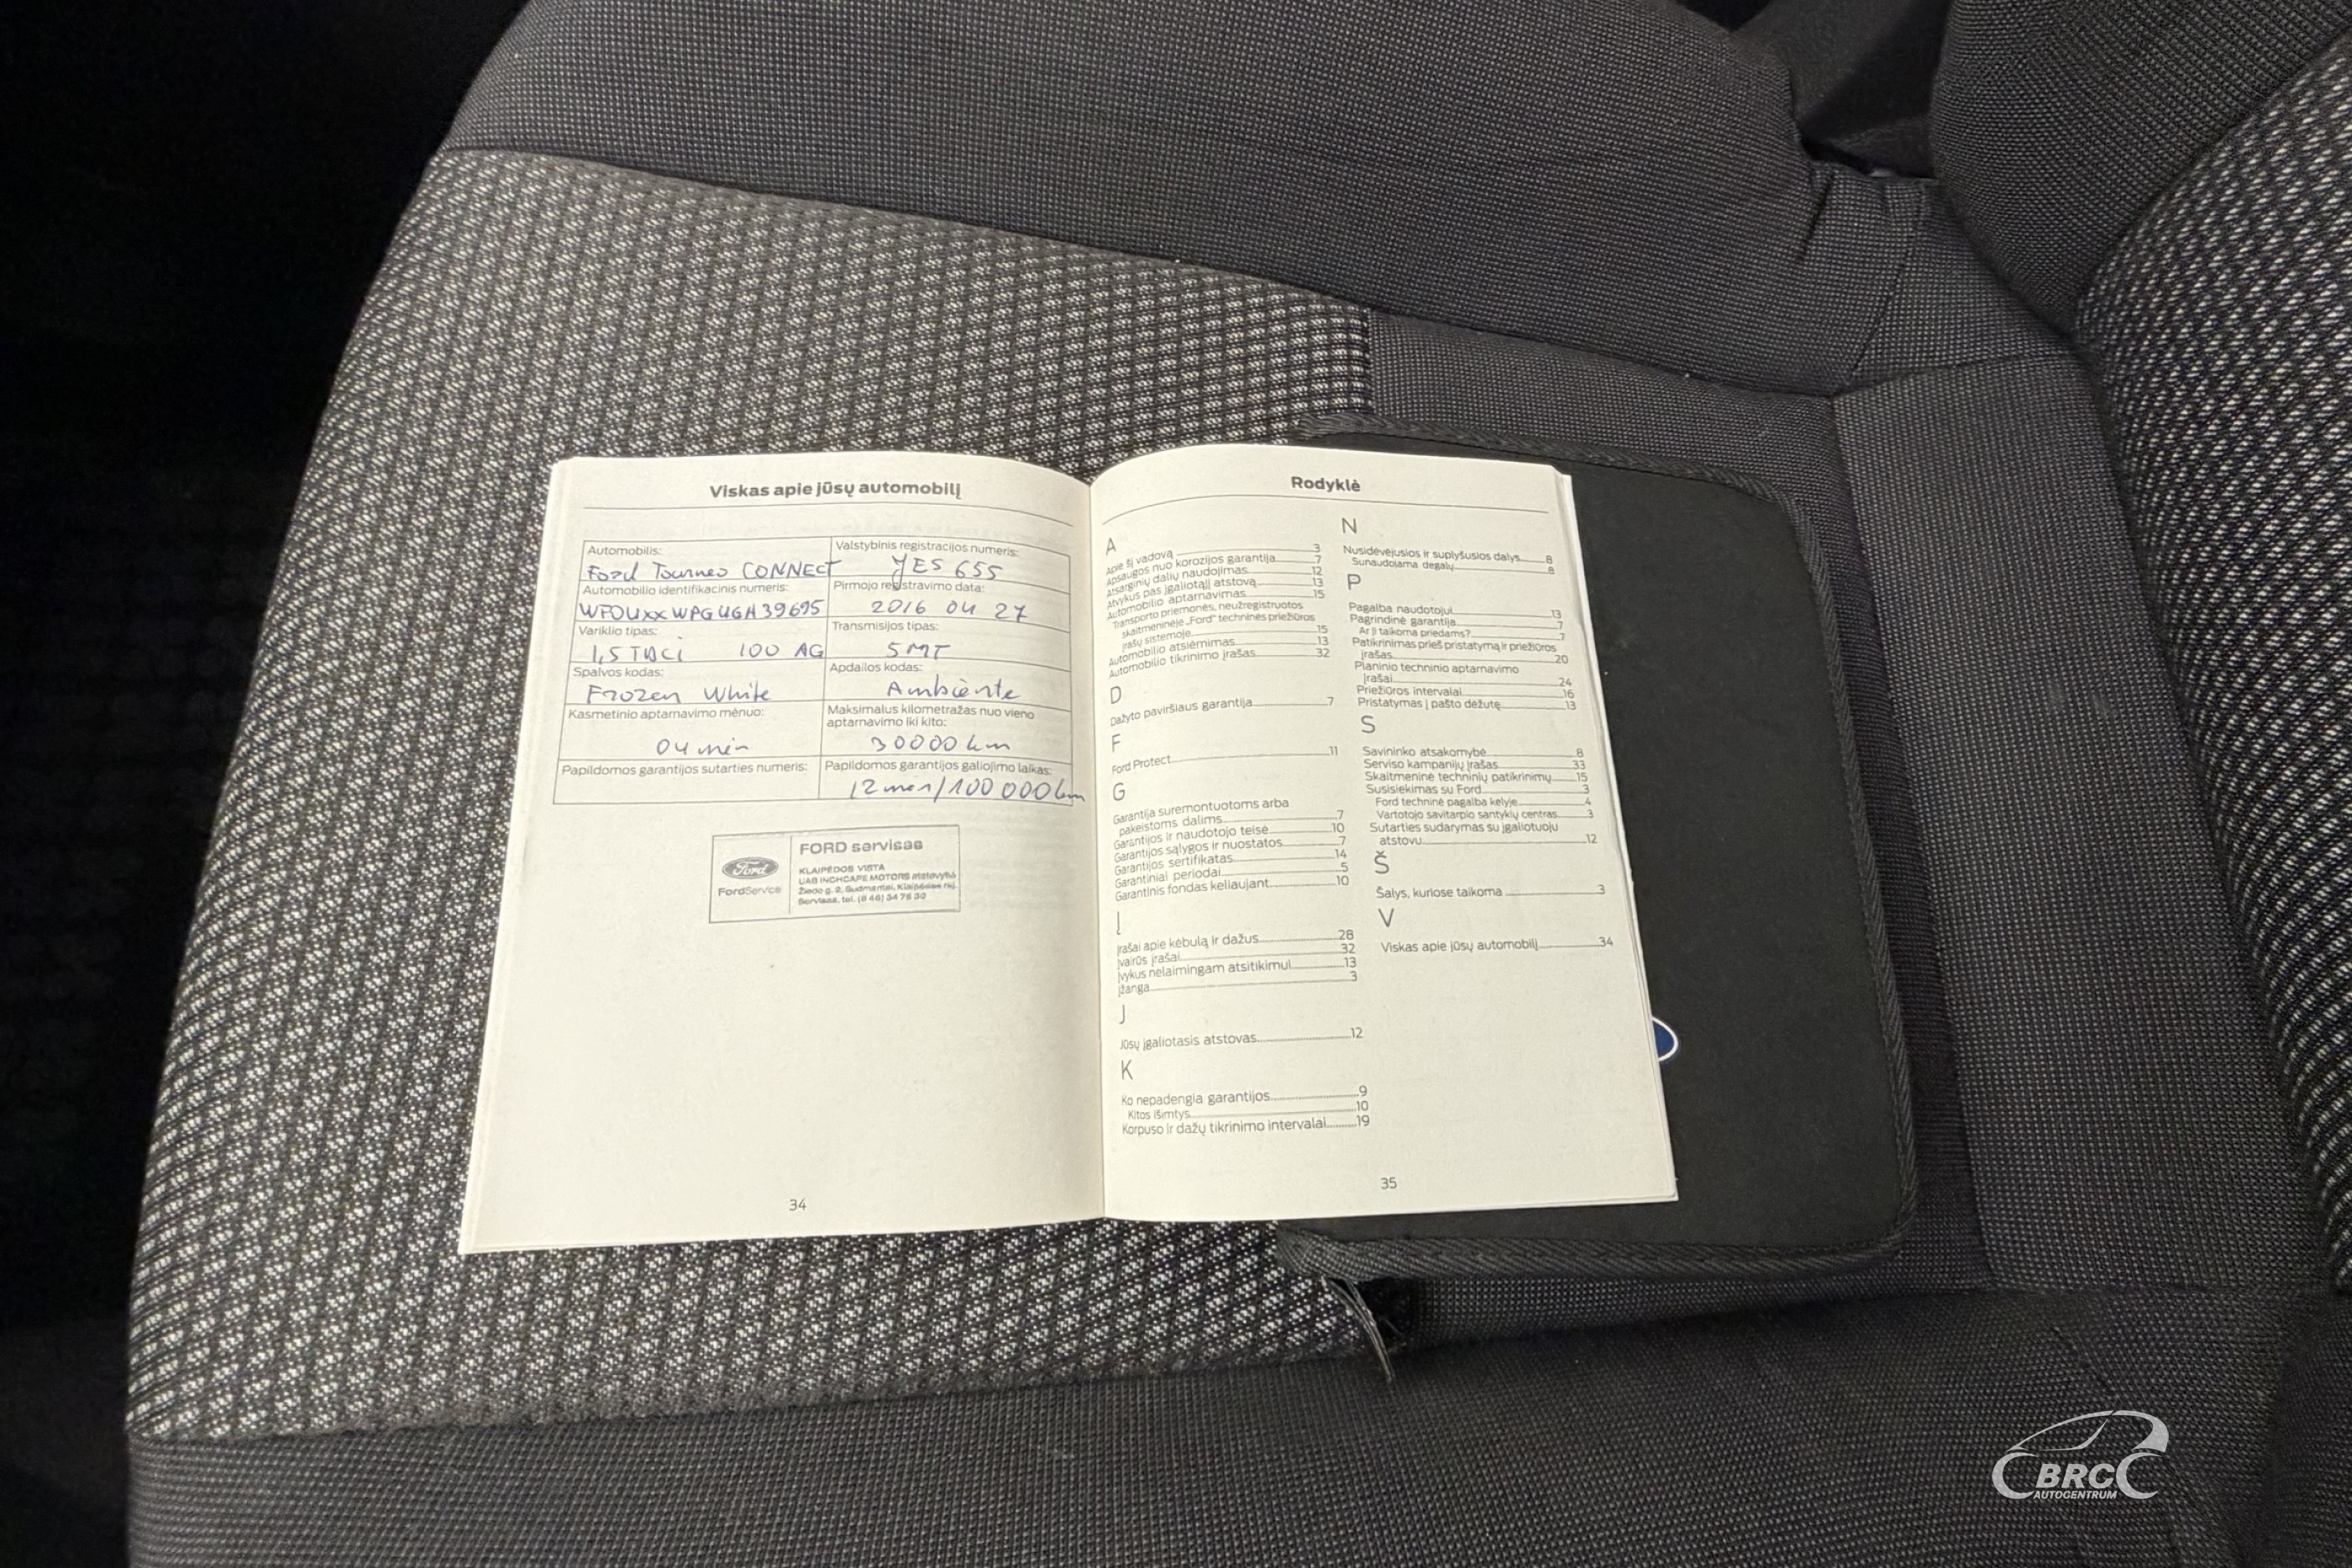 Viskas apie jūsų automobilį
Automobilis:
Ford Tourneo CONNECT
Valstybinis registracijos numeris:
YES 655
Automobilio identifikacinis numeris:
WFOUXXWPGUGA39695
Pirmojo registravimo data:
2016 04 27
Variklio tipas:
1,5 TDCi 100 AG
Transmisijos tipas:
5MT
Spalvos kodas:
Frozen White
Apdailos kodas:
Ambiente
Kasmetinio aptarnavimo mėnuo:
04 mėn
Maksimalus kilometražas nuo vieno
aptarnavimo iki kito:
30000 km
Papildomos garantijos sutarties numeris:
Papildomos garantijos galiojimo laikas:
12 mėn/100 000 km
Ford
FordService
FORD servisas
KLAIPĖDOS VISTA
UAB INCHCAPE MOTORS atstovybė
Žiedo g. 2, Sudmantai, Klaipėdos raj.
Servisas, tel. (8 46) 34 76 30
34
Rodyklė
A
Apie šį vadovą 3
Apsaugos nuo korozijos garantija 7
Atsarginių dalių naudojimas 12
Atvykus pas įgaliotąjį atstovą 13
Automobilio aptarnavimas 15
Transporto priemonės, neužregistruotos
skaitmeninėje „Ford“ techninės priežiūros
įrašų sistemoje 15
Automobilio atsiėmimas 13
Automobilio tikrinimo įrašas 32
D
Dažyto paviršiaus garantija 7
F
Ford Protect 11
G
Garantija suremontuotoms arba
pakeistoms dalims 7
Garantijos ir naudotojo teisė 10
Garantijos sąlygos ir nuostatos 7
Garantijos sertifikatas 14
Garantiniai periodai 5
Garantinis fondas keliaujant 10
Į
Įrašai apie kėbulą ir dažus 28
Įvairūs įrašai 32
Įvykus nelaimingam atsitikimui 13
Įžanga 3
J
Jūsų įgaliotasis atstovas 12
K
Ko nepadengia garantijos 9
Kitos išimtys 10
Korpuso ir dažų tikrinimo intervalai 19
N
Nusidėvėjusios ir suplyšusios dalys 8
Sunaudojama degalų 8
P
Pagalba naudotojui 13
Pagrindinė garantija 7
Ar ji taikoma priedams? 7
Patikrinimas prieš pristatymą ir priežiūros
įrašas 20
Planinio techninio aptarnavimo
įrašai 24
Priežiūros intervalai 16
Pristatymas į pašto dėžutę 13
S
Savininko atsakomybė 8
Serviso kampanijų įrašas 33
Skaitmeninė techninių patikrinimų 15
Susisiekimas su Ford 3
Ford techninė pagalba kelyje 4
Vartotojo savitarpio santykių centras 3
Sutarties sudarymas su įgaliotuoju
atstovu 12
Š
Šalys, kuriose taikoma 3
V
Viskas apie jūsų automobilį 34
35
BRC
AUTOCENTRUM